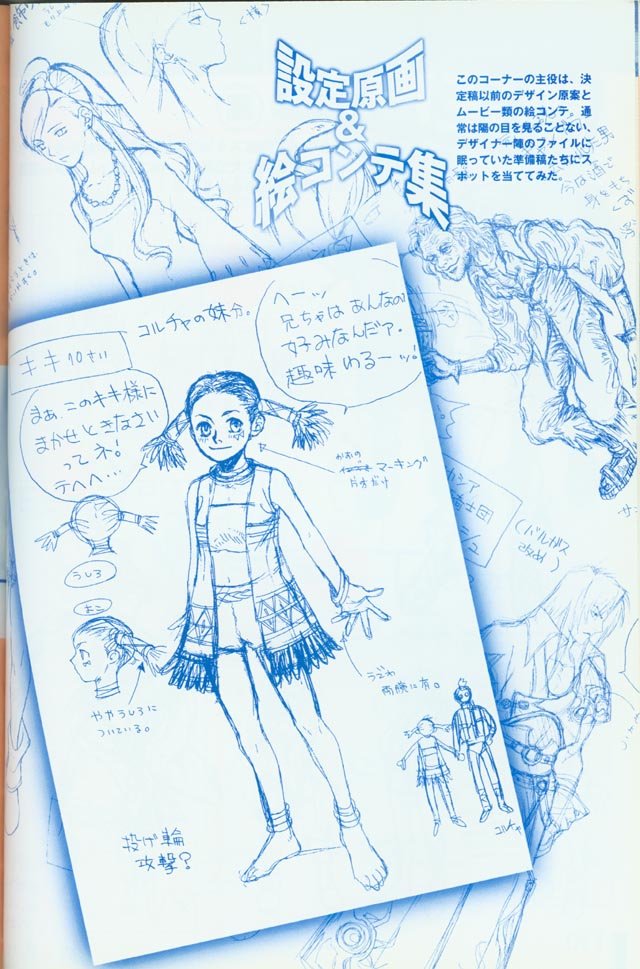 設定原画
&
絵コンテ集
このコーナーの主役は、決
定稿以前のデザイン原案と
ムービー類の絵コンテ。通
常は陽の目を見ることない、
デザイナー陣のファイルに
眠っていた準備稿たちにス
ポットを当ててみた。
コルチャの妹分。
ヘーッ
兄ちゃはあんなの
好みなんだァ。
趣味わるーッ!
キキ 10さい
まぁ、このキキ様に
まかせときなさい
ってネ!
テヘヘ…
かおの
マーキング
片方だけ
うしろ
よこ
ややうしろに
ついている。
うでわ
両腕に有。
コルチャ
投げ輪
攻撃?
(バルガス
改め)